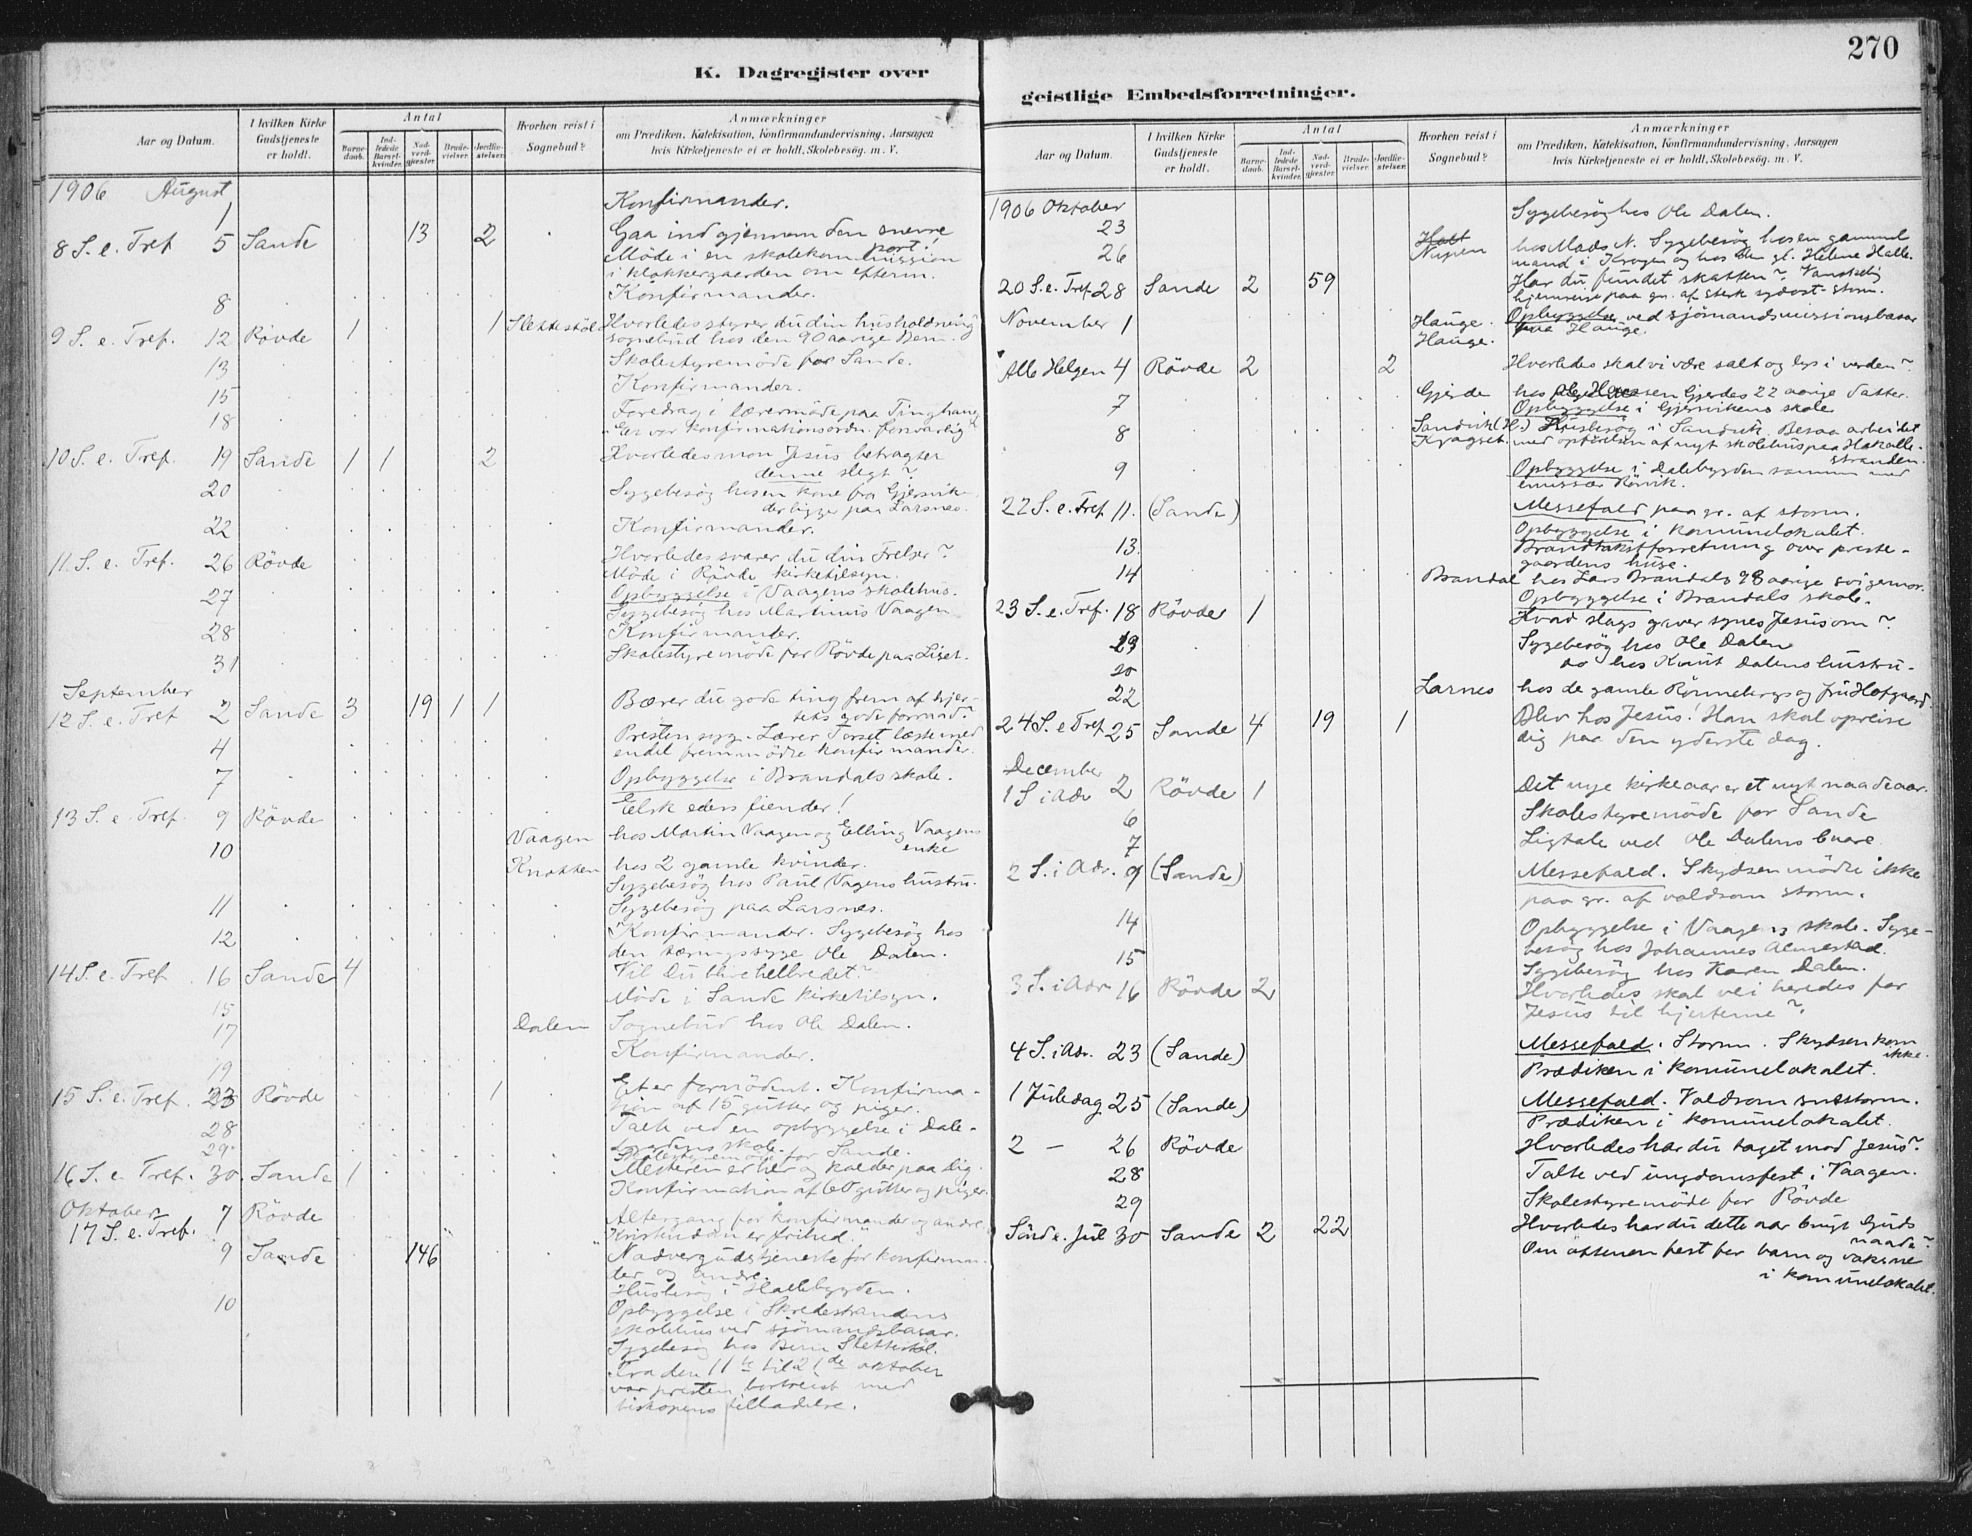 270
K. Dagregister over
Aar og Datum. I hvilken Kirke Gudstjeneste er holdt. Antal Barnedaab. Indledede Barselkvinder. Nadverdgjester Brudevielser. Jordfæstelser. Hvorhen reist i Sognebud? Anmærkninger om Prædiken, Katekisation, Konfirmandundervisning, Aarsagen hvis Kirketjeneste ei er holdt, Skolebesøg. m. V.
1906 August
1 Konfirmander.
8 S. e. Tref 5 Sande 13 2 Gaa ind gjennem den snevre port!
Möde i en skolekommission
i klokkergaarden om efterm.
8 Konfirmander.
9 S. e. Tref. 12 Rövde 1 1 Slettestöl Hvorledes styrer du din husholdning?
sognebud hos den 90 aarige Bern.
13 Skolestyremöde for Sande.
15 Konfirmander.
18 Foredrag i lærermöde paa Tinghaug
"Er vor konfirmationsordn. forsvarlig"
10 S. e. Tref. 19 Sande 1 1 2 Hvorledes mon Jesus betragter
denne slegt?
20 Sygebesög hos en kone fra Gjersvik
der ligge paa Larsnes.
22 Konfirmander.
11. S. e. Tref. 26 Rövde Hvorledes svarer du din Frelser?
Möde i Rövde kirketilsyn.
27 Opbyggelse i Vaagens skolehus.
Sygebesög hos Martinus Vaagen
28 Konfirmander.
31 Skolestyremöde for Rövde paa Liset.
September
12 S. e. Tref 2 Sande 3 19 1 1 Bærer du gode ting frem af hjer-
tets gode forraad?
4 Presten syg. Lærer Torset læste med
endel fremmödte konfirmander.
7 Opbyggelse i Brandals skole.
13 S. e. Tref. 9 Rövde Elsk eders fiender!
10 Vaagen hos Martin Vaagen og Elling Vaagens
enke
Knotten hos 2 gamle kvinder.
Sygebesög hos Paul Vagens hustru.
11 Sygebesög paa Larsnes.
12 Konfirmander. Sygebesög hos
den tæringssyge Ole Dalen.
14 S. e. Tref. 16 Sande 4 Vil Du blive helbredet?
15 Möde i Sande kirketilsyn.
17 Dalen Sognebud hos Ole Dalen.
19 Konfirmander.
15 S. e. Tref. 23 Rövde 1 Et er fornödent. Konfirma-
tion af 15 gutter og piger.
28 Talte ved en opbyggelse i Dale-
bygdens skole.
29. Skolestyremöde for Sande.
16 S. e. Tref. 30. Sande 1 Mesteren er her og kalder paa dig.
Konfirmation af 60 gutter og piger.
Oktober
17 S. e. Tref. 7 Rövde Altergang for konfirmander og andre.
Kristendom er frihed.
9 Sande 146 Nadvergudstjeneste for konfirman-
der og andre.
Husbesög i Hallebygden.
10 Opbyggelse i Skredestrandens
skolehus ved sjömandsbasar.
Sygebesög hos Bern Slettestöl.
Fra den 11te til 21de oktober
var presten bortreist med
biskopens tilladelse.
geistlige Embedsforretninger.
Aar og Datum. I hvilken Kirke Gudstjeneste er holdt. Antal Barnedaab. Indledede Barselkvinder. Nadverdgjester Brudevielser. Jordfæstelser. Hvorhen reist i Sognebud? Anmærkninger om Prædiken, Katekisation, Konfirmandundervisning, Aarsagen hvis Kirketjeneste ei er holdt, Skolebesög. m. V.
1906 Oktober
23 Sygebesög hos Ole Dalen.
26 Nupen hos Mads N. Sygebesög hos en gammel
mand i Krogen og hos den gl. Helene Halle.
20 S. e. Tref 28 Sande 2 59 Har du fundet skatten? Vanskelig
hjemreise paa gr. af sterk sydost-storm.
November 1 Hauge. Opbyggelse ved sjömandsmissionsbasar
Hauge. Hauge.
Alle Helgen 4 Rövde 2 2 Hvorledes skal vi være salt og lys i verden?
7 Gjerde hos Gjerdes 22 aarige datter.
Opbyggelse i Gjersvikens skole
8 Sandvik (H.) Husbesög i Sandvik. Besaa arbeidet
Kragset. med opförelsen af nyt skolehus paa Hakalle-
stranden.
9 Opbyggelse i Dalebygden sammen med
emissær Rörvik.
22 S. e. Tref 11. (Sande) Messefald paa gr. af storm.
Opbyggelse i komunelokalet.
13. Brandtakstforretning over preste-
gaardens huse.
14 Brandal hos Lars Brandals 98 aarige svigermor.
Opbyggelse i Brandals skole.
23 S. e. Tref. 18 Rövde 1 Hvad slags gaver synes Jesus om?
19 Sygebesög hos Ole Dalen
20 do hos Knut Dalens hustru.
22 Larnes hos de gamle Rönnebergs og fru Hofgaard.
24 S. e Tref 25 Sande 4 19 1 Bliv hos Jesus! Han skal opreise
dig paa den yderste dag.
December
1 S i Adv 2 Rövde 1 Det nye kirkeaar er et nyt naadeaar.
6 Skolestyremöde for Sande
7 Ligtale ved Ole Dalens baare.
2 S. i Adv. 9 (Sande) Messefald. Skydsen mödte ikke
paa gr. af voldsom storm.
14 Opbyggelse i Vaagens skole. Syge-
besög hos Johannes Almestad.
15 Sygebesög hos Karen Dalen.
3 S. i Adv 16 Rövde 2 Hvorledes skal vei beredes for
Jesus til hjerterne?
4 S. i Adv. 23 (Sande) Messefald. Storm. Skydsen kom
ikke.
Prædiken i komunelokalet.
1 Juledag 25 (Sande) Messefald. Voldsom snestorm.
Prædiken i komunelokalet.
2 — 26 Rövde Hvorledes har du taget mod Jesus?
28 Talte ved ungdomsfest i Vaagen.
29 Skolestyremöde for Rövde
Sönd e. Jul 30 Sande 2 22 Hvorledes har du dette aar brugt Guds
naade?
Om aftenen fest for barn og voksne
i komunelokalet.